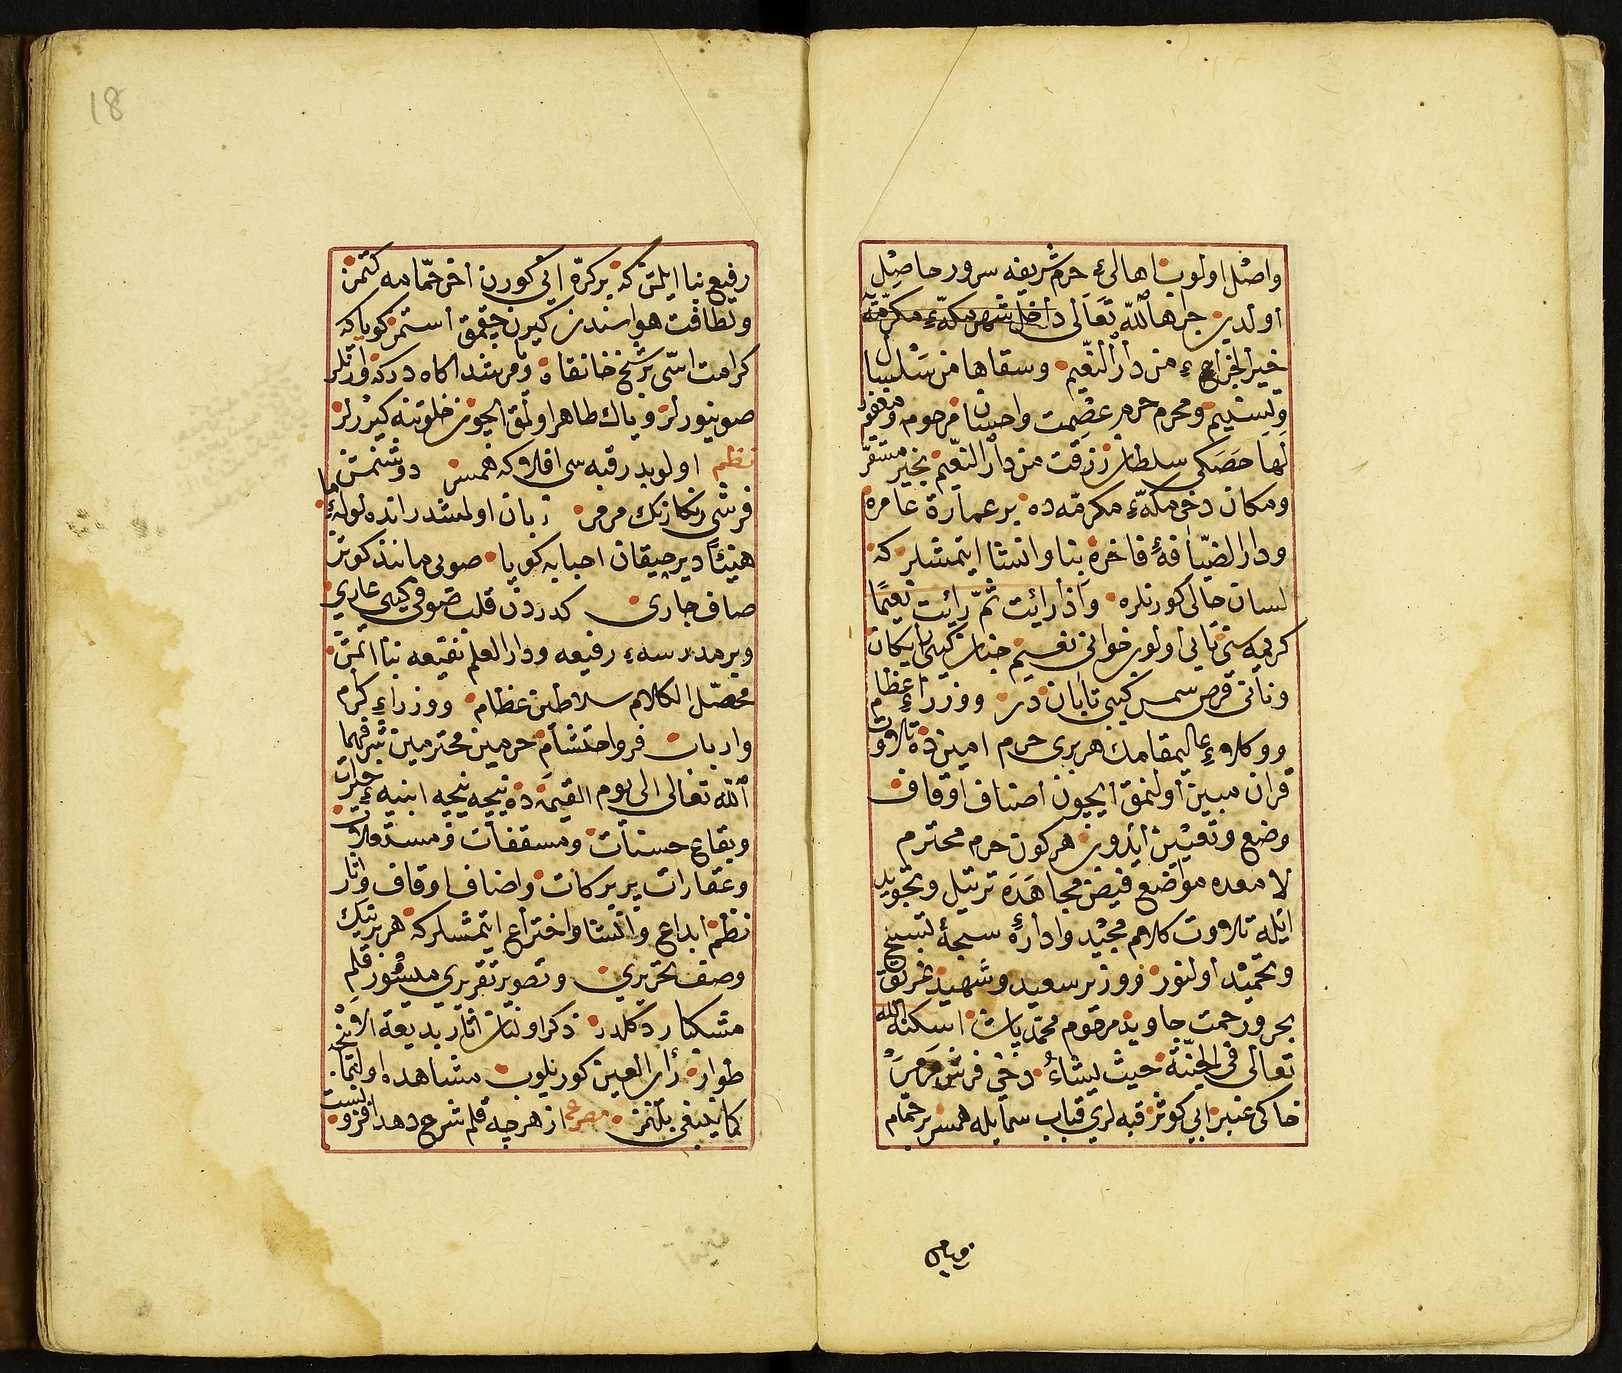 واصل اولوب اهالیء حرم شریفه سرور حاصل
اولدی جزاها الله تعالی داخل شهر مکهٔ مکرمة
خیر الجزاء من دار النعیم وسقاها من سلسبیل
وتسنیم ومحرم حرم عصمت واحسان مرحوم ومغفور
لها حصکی سلطان رزقت من دار النعیم بخیر مستقر
ومکان دخی مکهٔ مکرمه ده بر عمارة عامره
ودار الضیافهٔ فاخره بنا وانشا ایتمشلر که
لسان حالی کورنلره واذا رایت ثم رایت نعیما
کریمه سنی تالی اولور خوانی نعیم جنان کبی رایکان
ونانی قرص شمس کبی تابان در ووزراء عظام
ووکلاء عالیمقامک هر بری حرم امینده تلاوت
قرآن مبین اولنمق ایچون اصناف اوقاف
وضع وتعیین ایدوب هر کون حرم محترم
لامعده مواضع فیض مجاهده ترتیل وتجوید
ایله تلاوت کلام مجید وادارهٔ سبحهٔ تسبیح
وتحمید اولنور ووزیر سعید وشهید غریق
بحر ورحمت جاوید مرقوم محمد پاشا اسکنه الله
تعالی فی الجنة حیث یشاء دخی فرش مرمر
خاکی عنبر ابی کوثر قبه لری قباب سمایله همسر بر حمام
رفیع بنا ایلمش که بر کره ایی کورن اخر حمامه کتمز
ونظافت هواسندن کیرن چقمق استمز کویا که
کرامت اسی بر شیخ خانقاه ومرشد اکاه در که ارنلر
صوینورلر وپاک طاهر اولمق ایچون خلوتنه کیررلر
نظم اولوبدر قبه سی افلاکه همسر دوشنمش
فرشی رنکارنک مرمر زبان اولمشدر انده لولهٔ ما
هنیئا دیر چیقان احبابه کویا صویی مانند کوثر
صاف جاری کدردن قلب صوفی کبی عاری
وبر مدرسهء رفیعه ودار العلم نفیعه بنا اتمش
محصل الکلام سلاطین عظام ووزراء کرام
وارباب فرواحتشام حرمین محترمین شرفهما
الله تعالی الی یوم القیمه ده نیجه نیجه ابنیهء خیرات
وبقاع حسنات ومسقفات ومستغلات
وعقارات پر برکات واصناف اوقاف واثار
نظم ابداع وانشا واختراع ایتمشلر که هر برینک
وصف تحریری وتصویر تقریری میسور قلم
مشکبار دکلدر ذکر اولنان اثار بدیعة الا
طوار رأی العین کورنلوب مشاهده اولنمایجه
کما ینبغی بلنمز مصرع از هرچه قلم شرح دهد افزونست